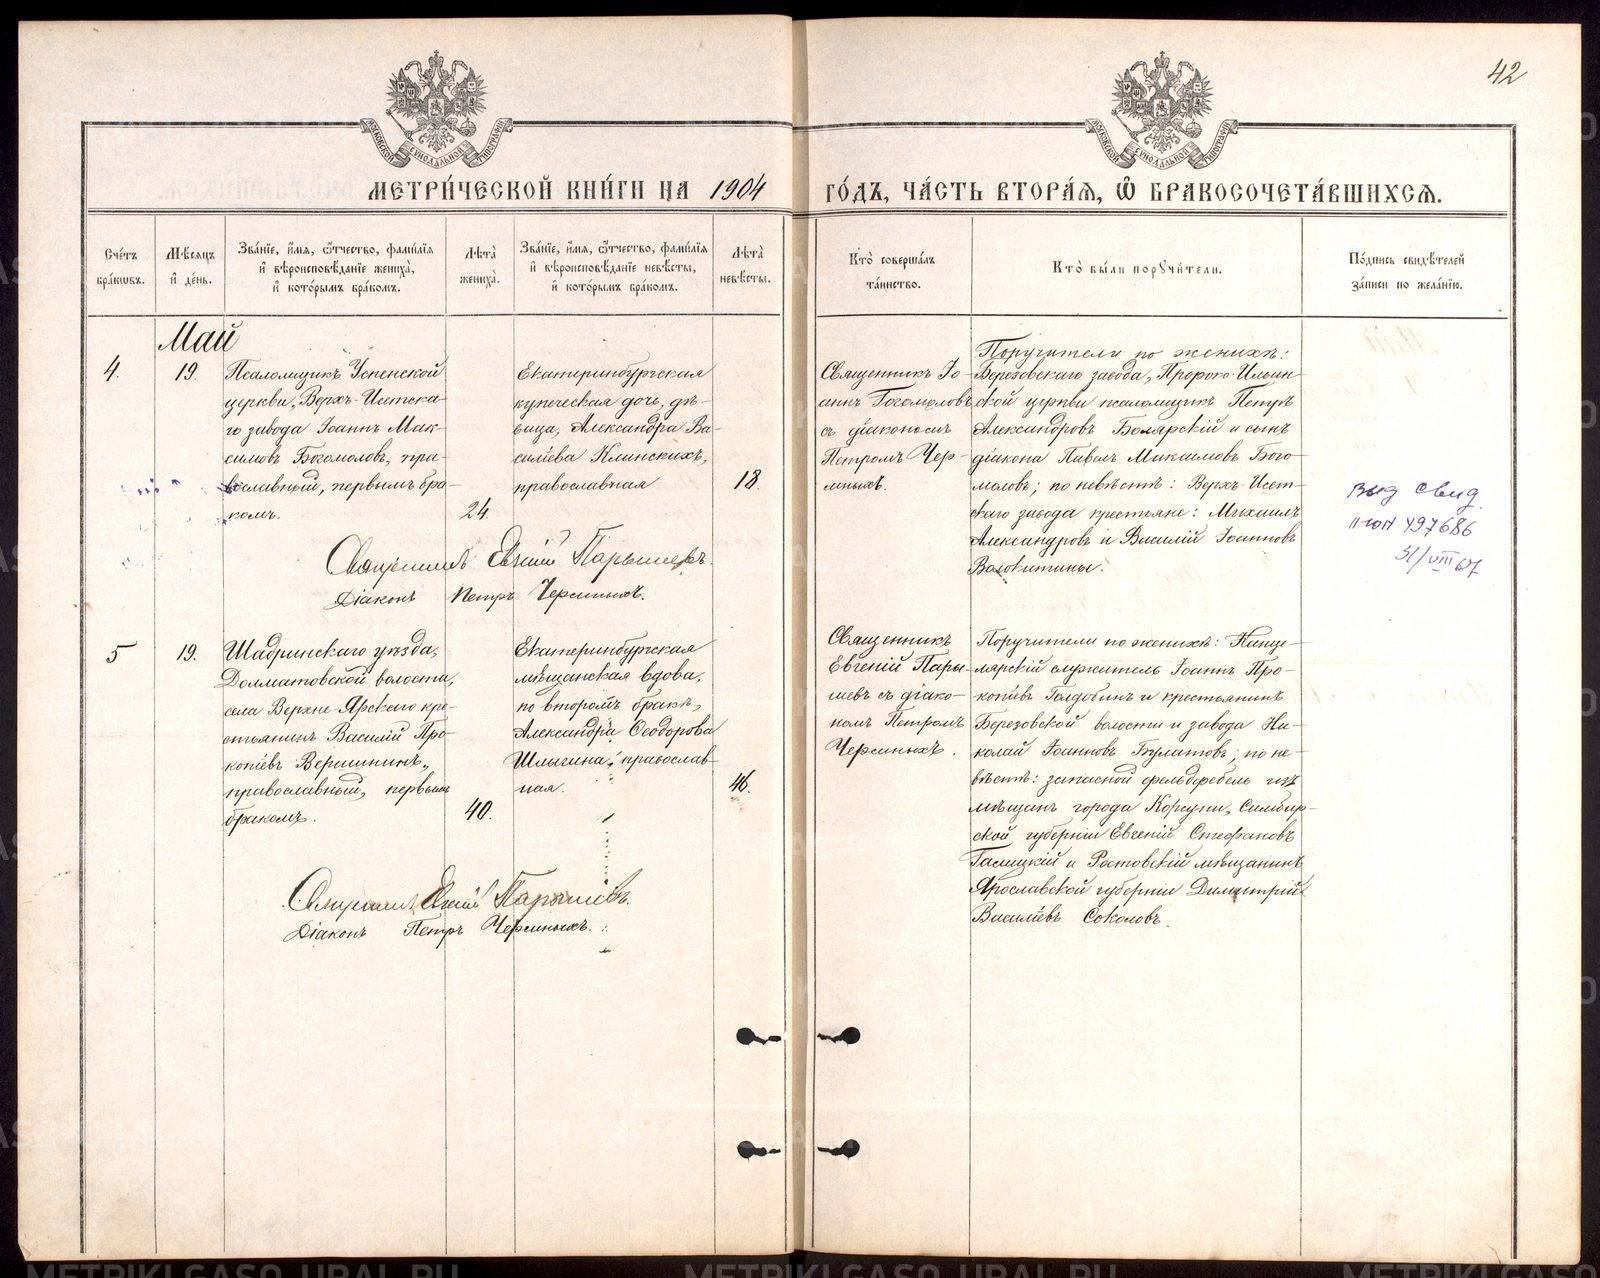 42
МОСКОВСКОЙ СѴНОДАЛЬНОЙ ТИПОГРАФІИ
МОСКОВСКОЙ СѴНОДАЛЬНОЙ ТИПОГРАФІИ
МЕТРИ́ЧЕСКОЙ КНИ́ГИ НА 1904 ГО́ДЪ, ЧА́СТЬ ВТОРА́Я, Ѡ БРАКОСОЧЕТА́ВШИХСЯ.
Сче́тъ
бра́ковъ.
Мѣ́сяцъ
и де́нь.
Зва́ніе, и́мя, о́тчество, фами́лія
и вѣроисповѣ́даніе жениха̀,
и кото́рымъ бра́комъ.
Лѣта̀
жениха̀.
Зва́ніе, и́мя, о́тчество, фами́лія
и вѣроисповѣ́даніе невѣ́сты,
и кото́рымъ бра́комъ.
Лѣта̀
невѣ́сты.
Кто̀ соверша́лъ
та́инство.
Кто̀ бы́ли поручи́тели.
По́дпись свидѣ́телей
за́писи по жела́нію.
Май
4.
19.
Псаломщикъ Успенской
церкви, Верхъ-Исетска-
го завода Іоаннъ Мак-
симовъ Богомоловъ, пра-
вославный, первымъ бра-
комъ.
24.
Екатеринбургская
купеческая дочь, дѣ-
вица, Александра Ва-
силіева Клинскихъ,
православная
18.
Священникъ Іо-
аннъ Богомоловъ
съ діакономъ
Петромъ Чер-
мныхъ.
Поручители по женихѣ:
Березовскаго завода, Пророко-Ильин-
ской церкви псаломщикъ Петръ
Александровъ Боярскій и сынъ
діакона Павелъ Максимовъ Бого-
моловъ; по невѣстѣ: Верхъ-Исет-
скаго завода крестьяне: Михаилъ
Александровъ и Василій Іоанновъ
Волокитины.
выд свид
497686
31/VIII 67
Священникъ Евгеній Парышевъ.
Діаконъ Петръ Чермныхъ.
5
19.
Шадринскаго уѣзда,
Долматовской волости,
села Верхне-Ярскаго кре-
стьянинъ Василій Про-
копіевъ Вершининъ,
православный, первымъ
бракомъ.
40.
Екатеринбургская
мѣщанская вдова,
по второмъ бракѣ,
Александра Ѳеодорова
Шлыгина, православ-
ная.
46.
Священникъ
Евгеній Пары-
шевъ съ діако-
номъ Петромъ
Чермныхъ.
Поручители по женихѣ: Канце-
лярскій служитель Іоаннъ Про-
копіевъ Голдобинъ и крестьянинъ
Березовской волости и завода Ни-
колай Іоанновъ Булатовъ; по не-
вѣстѣ: запасной фельдфебель изъ
мѣщанъ города Корсуни, Симбир-
ской губерніи Евгеній Стефановъ
Галицкій и Ростовскій мѣщанинъ
Ярославской губерніи Димитрій
Василіевъ Соколовъ.
Священникъ Евгеній Парышевъ.
Діаконъ Петръ Чермныхъ.
METRIKI.GASO-URAL.RU
METRIKI.GASO-URAL.RU